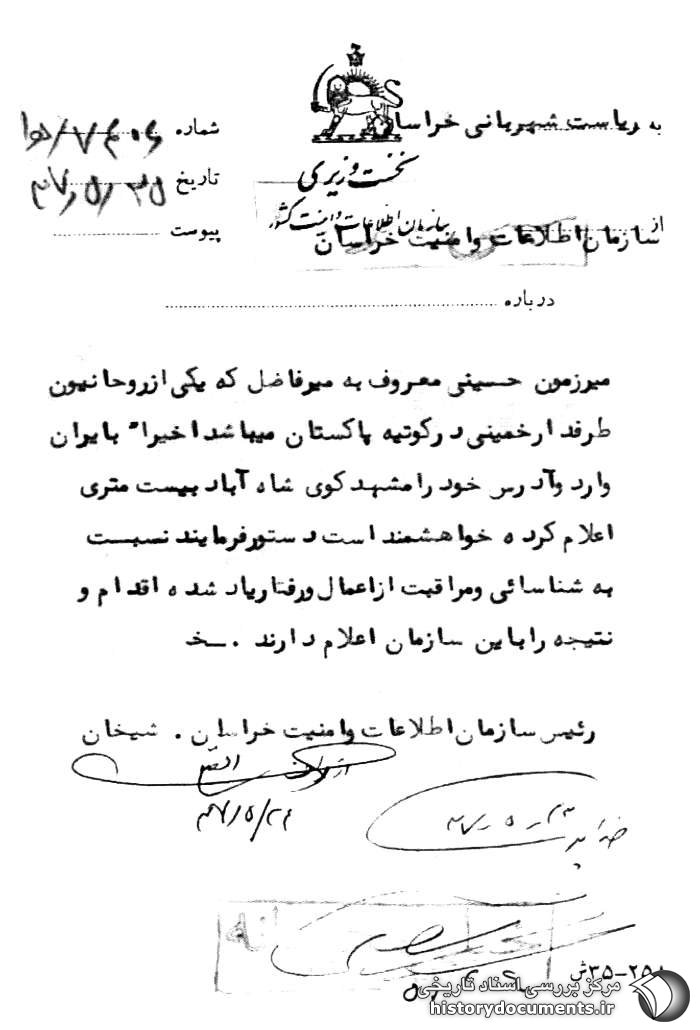 به ریاست شهربانی خراسان
شماره
نخست وزیری
تاریخ
سازمان اطلاعات و امنیت کشور
پیوست
از سازمان اطلاعات وامنیت خراسان
درباره
میرزمون حسینی معروف به میرفاضل که یکی از روحانیون
طرفدار خمینی در کوتیه پاکستان میباشد اخیراً بایران
وارد وآدرس خود را مشهد کوی شاه آباد بیست متری
اعلام کرده خواهشمند است دستور فرمایند نسبت
به شناسائی ومراقبت از اعمال ورفتار یاد شده اقدام و
نتیجه را باین سازمان اعلام دارند .ـخ
رئیس سازمان اطلاعات وامنیت خراسان . شیخان
۴۷/۵/۲۶
۳۵-۲۵۸ش
مرکز بررسی اسناد تاریخی
historydocuments.ir